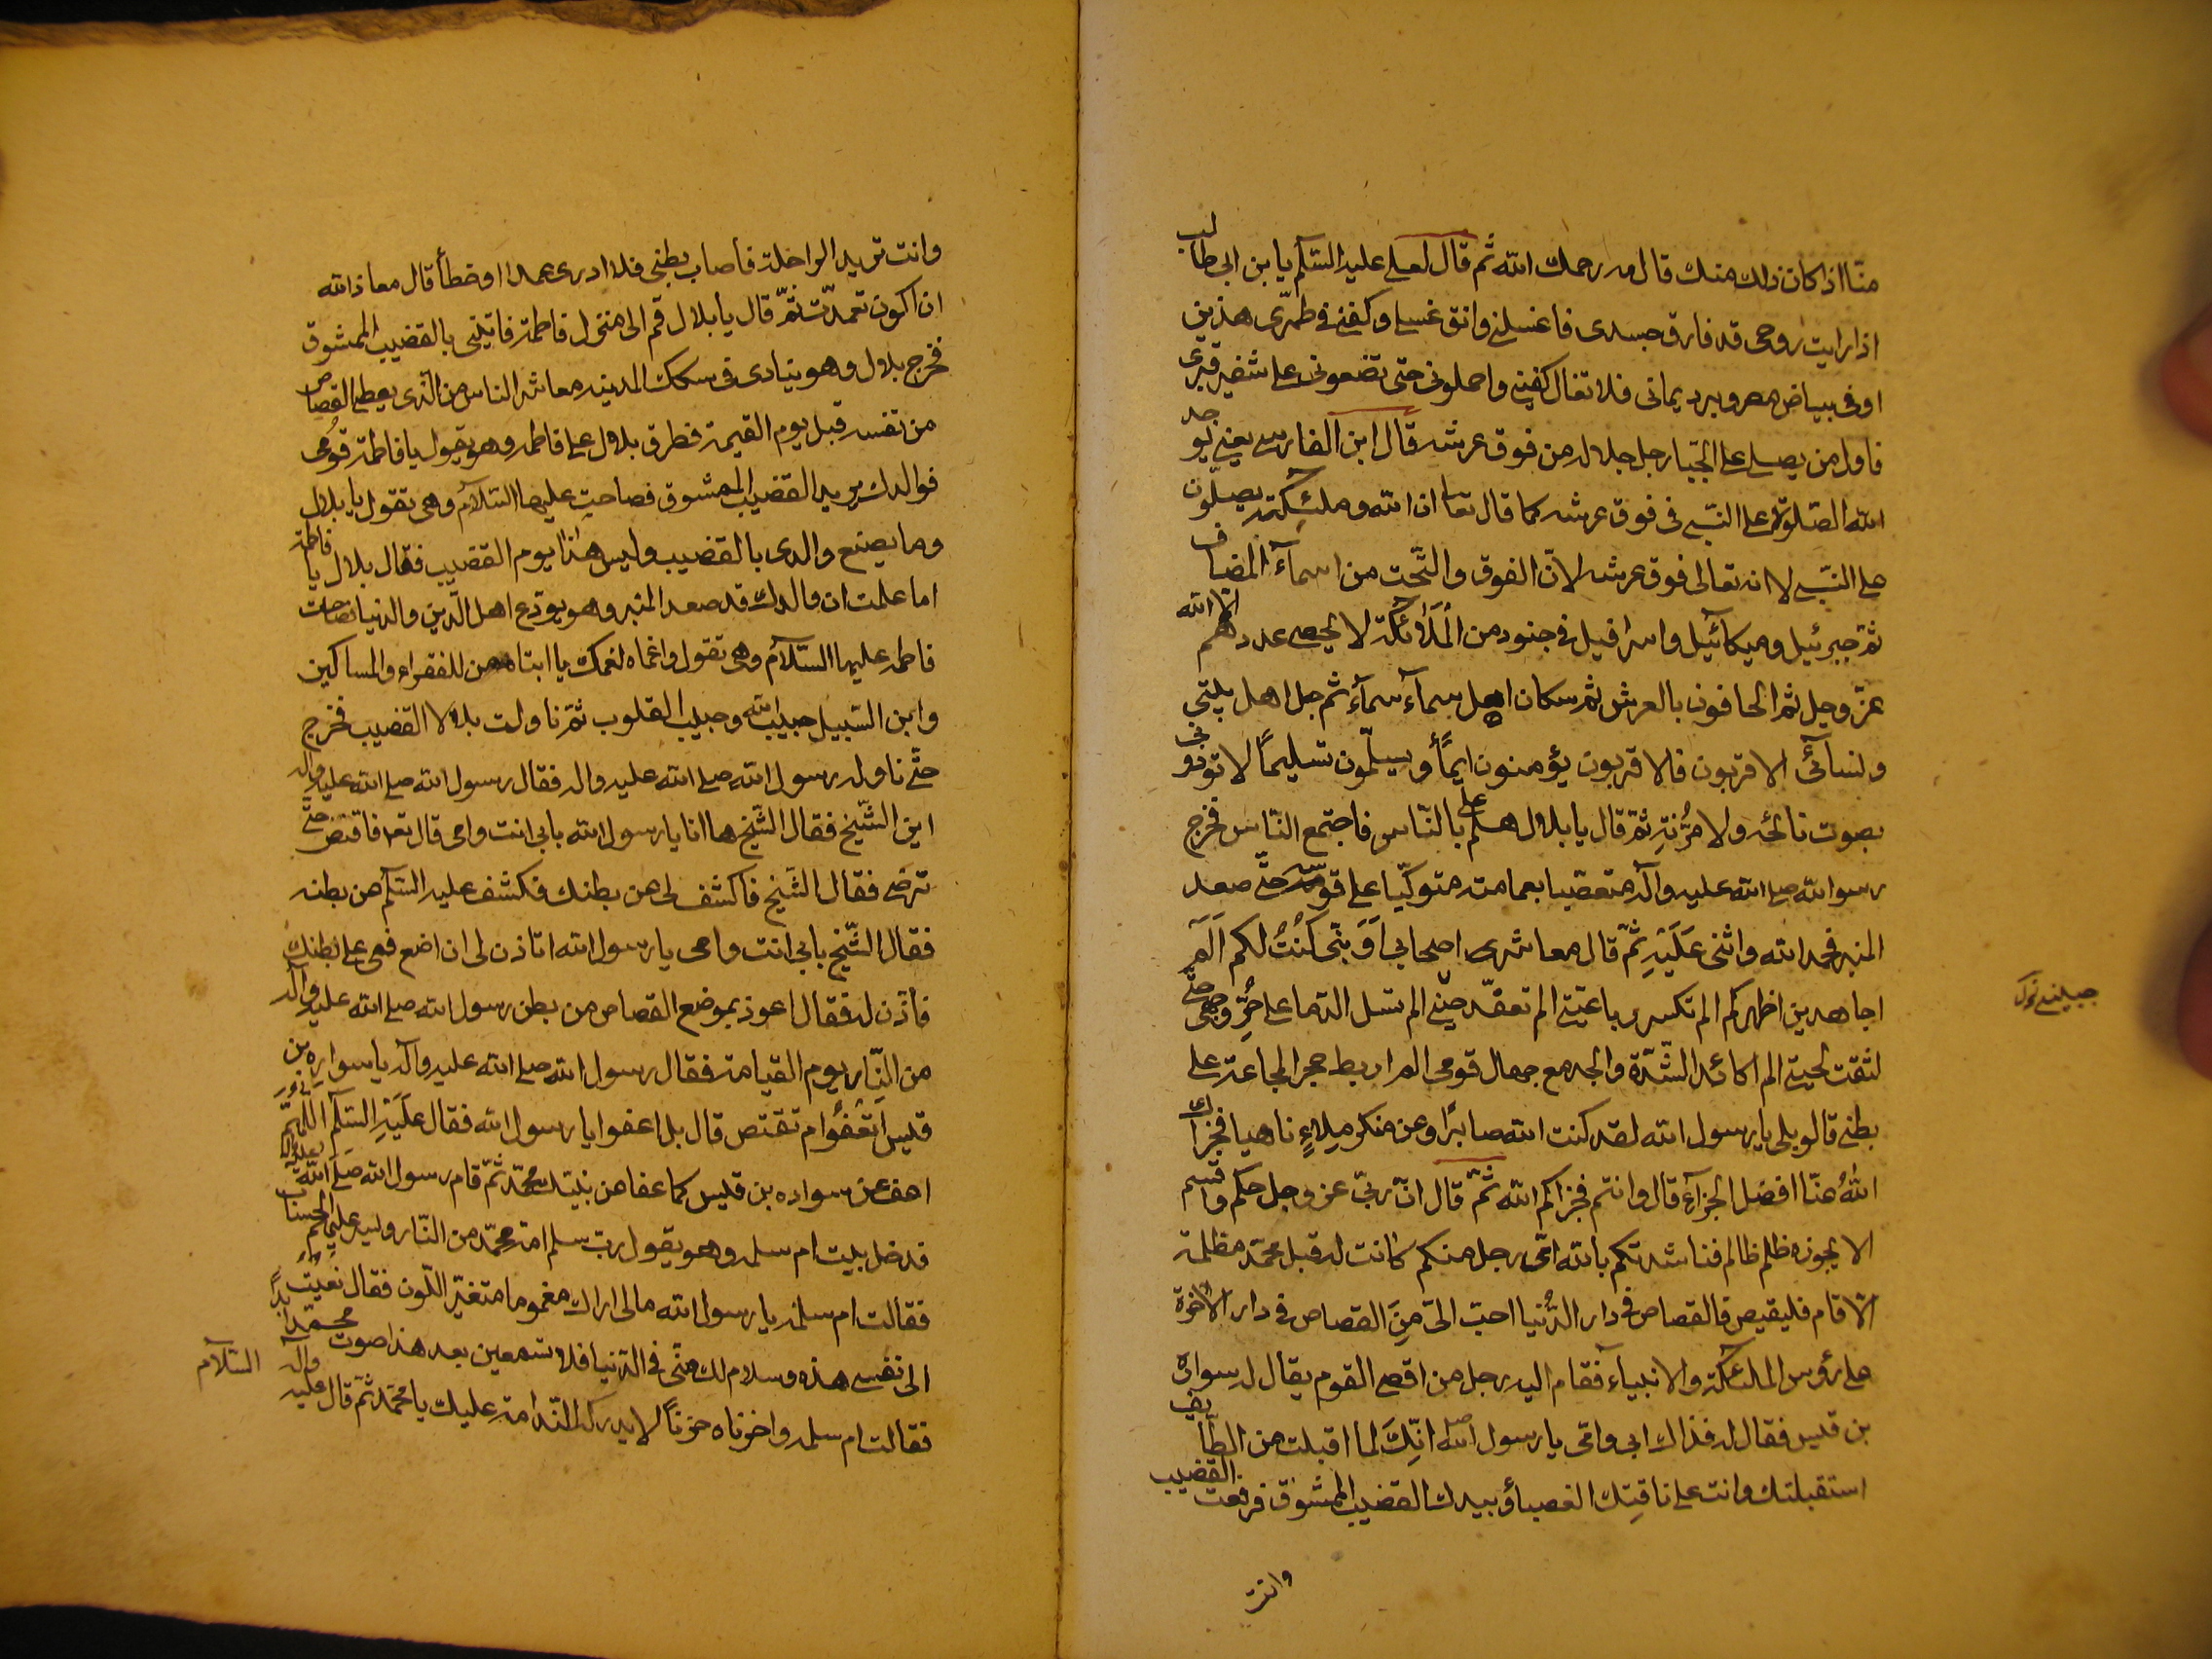 منّا اذا كان ذلك منك قال مه رحمك الله ثمّ قال لعلى عليه السّلم يا بن ابى طالب
اذا رايت روحى قد فارق جسدى فاغسلنى وانق غسلى وكفنى فى طمرّى هذين
او فى بياض مصر وبرد يمانى فلا تغال كفنى واحملونى حتى تضعونى على شفير قبرى
فاول من يصلى على الجبّار جل جلاله من فوق عرشه قال ابن الفارسى يعنى يوجد
الله الصّلوة على النبّى فى فوق عرشه كما قال تعا ان الله وملئكته يصلّون
على النبّى لا انه تعالى فوق عرشه لانّ الفوق والتّحت من اسمآء المضاف
ثمّ جبرئيل وميكائيل واسرافيل فى جنود من المَلآئكة لا يحصى عددهم الّا الله
عزّ وجل ثمّ الحافون بالعرش ثم سكان اهل سمآء سمآء ثم جل اهل بيتى
ونسآئى الاقربون فالاقربون يؤمنون ايمًا وَيسلّمون تسليمًا لا تؤذونى
بصوت نائحه ولا مُرّنةِ ثمّ قال يا بلال هلم علىّ بالنّاس فاجتمع النّاس فخرج
رسو الله صلى الله عليه وآله متعصّبا بعمامته متوكّيا على قوسه حتّى صعد
المنبر فحمد الله واثنى عَلَيْهِ ثمّ قال معاشر اصحابى اَىّ نبّى كُنْتُ لكم اَلَم
اجاهد بين اظهركم الم تكسر رباعيّتى الم تعفّر جبينى الم تسل الدّما على حُرِّ وجهى حتّى
جبينى نول
لثقت لحيتى الم اكائد الشّدّة والجهد مع جهال قومى الم اربط حجر المجاعة على
بطنى قالو بلى يا رسول الله لقد كنت الله صابرًا وعن منكر ملاءٍ ناهيا فجزاك
اللهُ عنّا افضل الجزآء قال وانتم فجزاكم الله ثمّ قال انّ ربّى عزّ وجل حكم واقسم
الا يجوزه ظلم ظالم فناشدتكم بالله اىّ رجل منكم كانت له قبل محمّد مظلمة
الّا قام فليقيص فالقصاص فى دار الدُّنيا احبّ الىّ مِنَ القصاص فى دار الآخرة
على رؤس الملئكة والانبيآء فقام اليه رجل من اقصى القوم يقال له سواده
بن قيس فقال له فذاك ابى وامّى يا رسول الله انّكَ لما اقبلت من الطّآيف
استقبلتك وانت على ناقتِك الغصباؤ بيدك القضيب الممشوق فرفعت القضيب
وانت
وانت تريد الراحلة فاصاب بطنى فلا ادرى عمدا او خطأ قال معاذ الله
ان اكون تعمدّت ثمّ قال يا بلال قم الى منزل فاطمة فاتينى بالقضيب الممشوق
فخرج بلال وهو ينادى فى سكك المدينه معاشر الناس من الّذى يعطى القصاص
من نفسه قبل يوم القيمة فطرق بلال على فاطمه وهو يقول يا فاطمة قُومى
فوالدك يريد القضيب الممشوق فصاحت عليها السّلام وهى تقول يا بلال
وما يصنع والدى بالقضيب وليس هذا يوم القضيب فقال بلال يا فاطمة
اما علمت ان والدك قد صعد المنبر وهو يودّع اهل الدّين والدنيا فصاحت
فاطمه عليها السّلام وهى تقول واغماه لغمك يا ابتاه من للفقراء والمساكين
وابن السّبيل حبيب الله وحبيب القلوب ثمّ ناولت بلالا القضيب فخرج
حتّى ناوله رسول الله صلى الله عليه واله فقال رسول الله صلى الله عليه واله
اين الشّيخ فقال الشّيخ ها انا يا رسول الله بابى انت وامى قال تعه فاقتص حتّى
ترضى فقال الشّيخ فاكشف لى عن بطنك فكشف عليه السّلم عن بطنه
فقال الشّيخ بابى انت وامى يا رسول الله اتاذن لى ان اضع فمى على بطنك
فاذن له فقال اعوذ بموضع القصاص من بطن رسول الله صلى الله عليه وآله
من النّار يوم القيامة فقال رسول الله صلى الله عليه وآله يا سواده بن
قيس اَتَعْفُوا ام تقتص قال بل اعفوا يا رسول الله فقال عَلَيْهِ السّلم اللّهُمَّ
اعف عن سواده بن قيس كما عفا عن نبيّك محمّد ثمّ قام رسول الله صَلّى الله عليه وآله
فدخل بيت ام سلمه وهو يقول رب سلم امة محمّد من النّار ويسر عليهم الحساب
فقالت ام سلمه يا رسول الله مالى اراك مغموما متغيّر اللّون فقال نُعيت
الى نفسى هذه وسلام لك منّى فى الدّنيا فلا تسمعين بعد هذا صوت محمّد ابدًا
فقالت ام سلمه واحزناه حزنًا لا يدركه النّدامة عليك يا محمّد ثمّ قال عليه وآله السّلام